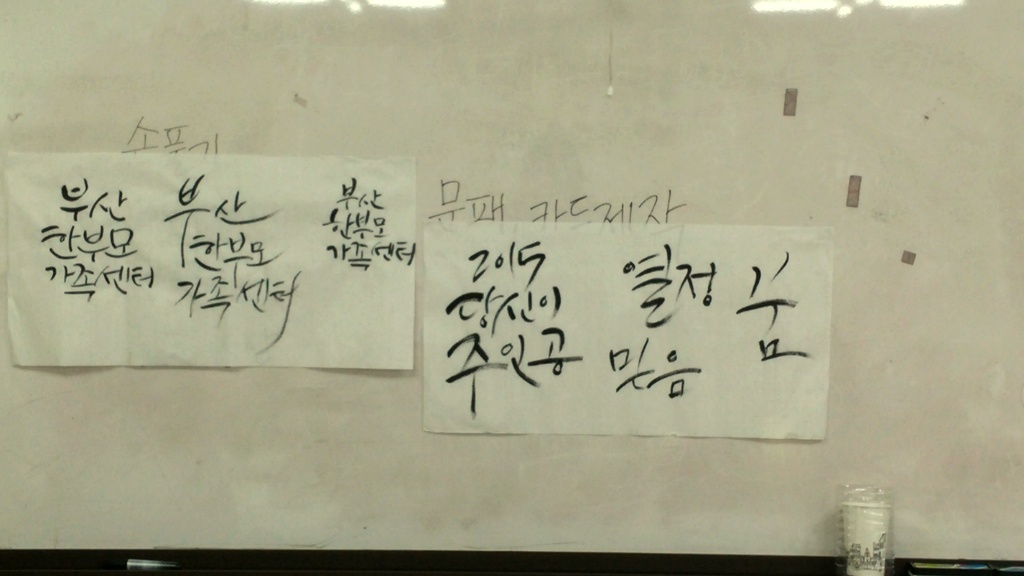 부산
한부모
가족센터
부산
한부모
가족센터
부산
한부모
가족센터
문패 카드제작
2015
당신이
주인공
열정
믿음